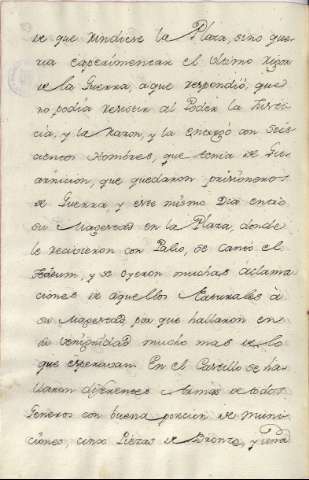 de que rindiese la Plaza, sino que-
ria experimentar el ultimo rigor
de la Guerra, a que respondió, que
no podia resistir al Poder la Justi-
cia, y la razon, y la entregó con Seis-
cientos Hombres, que tenia de Gua-
rnicion, que quedaron prisioneros
de Guerra, y este mismo Dia entró
su Magestad en la Plaza, donde
le recibieron con Palio, se cantó el
Tedeum, y se oyeron muchas aclama
ciones de aquellos Naturales à
su Magestad, por que hallaron en
su venignidad mucho mas de lo
que esperavan. En el Castillo se ha-
llaron diferentes Armas de todos
Generos con buena porcion de Muni-
ciones, cinco Piezas de Bronze, y una